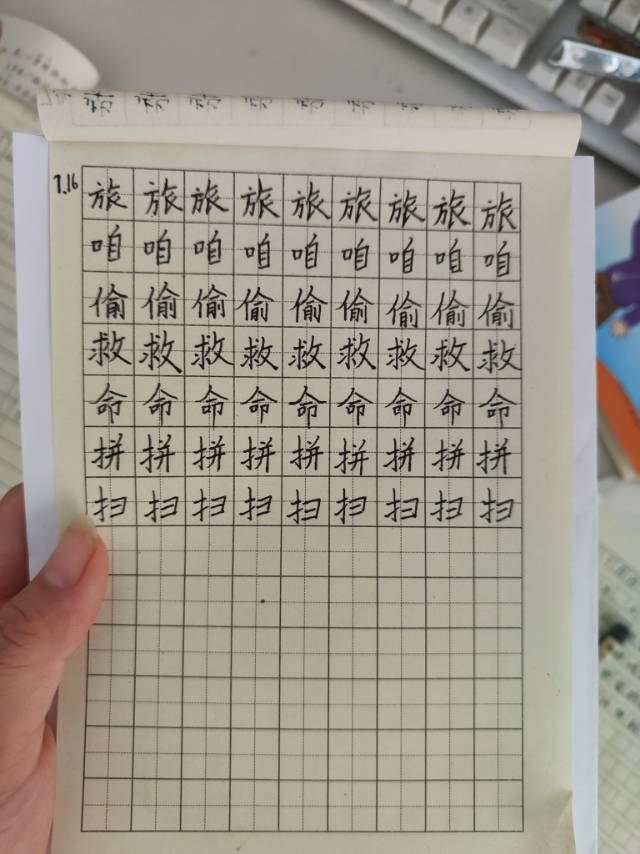 7.16
旅旅旅旅旅旅旅旅旅
咱咱咱咱咱咱咱咱咱
偷偷偷偷偷偷偷偷偷
救救救救救救救救救
命命命命命命命命命
拼拼拼拼拼拼拼拼拼
扫扫扫扫扫扫扫扫扫